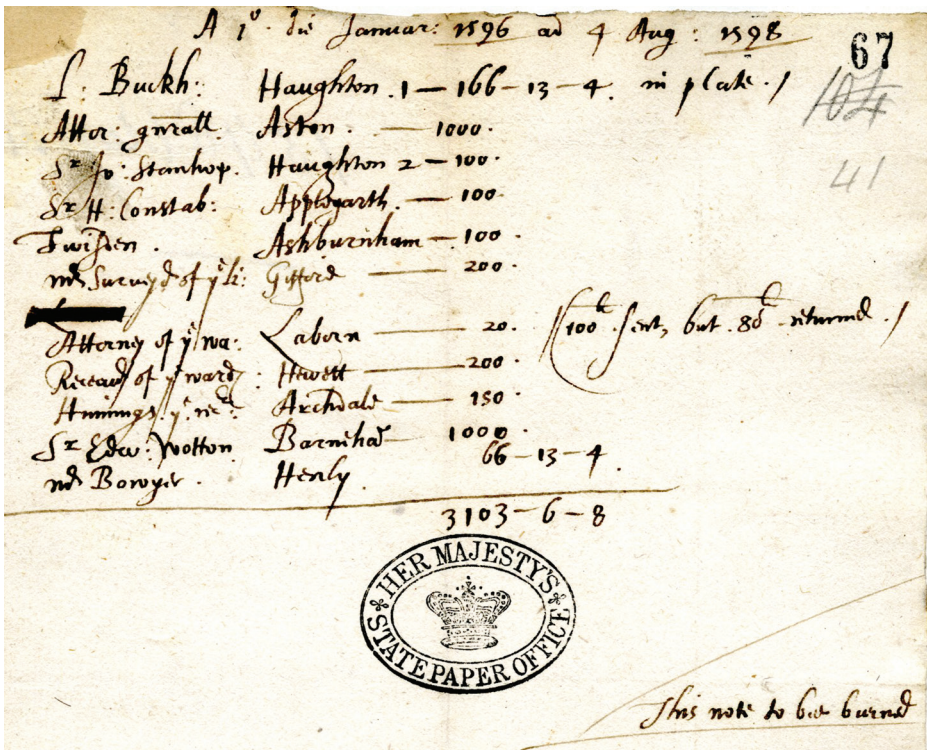 A 1º die Januar: 1596 ad 4 Aug: 1598
67
104
41
L: Buckh: Haughton 1 — 166 - 13 - 4 in plate /
Attor: gnrall Aston. — 1000.
Sr Jo: Stanhop. Haughton 2 — 100.
Sr H: Constab: Applegarth. — 100.
Twisden. Ashburnham — 100.
Survey of ye li: Gifford — 200.
Attorney of ye wa: Laborn — 20. (100l sent, but 80l returned /
Receaur of ye ward: Hewett — 200.
Archdale — 150.
Sr Edw: Wotton Barnihā — 1000
Bowyer. Henly. 66 - 13 - 4.
3103 - 6 - 8
HER MAJESTY'S
STATE PAPER OFFICE
This note to bee burned